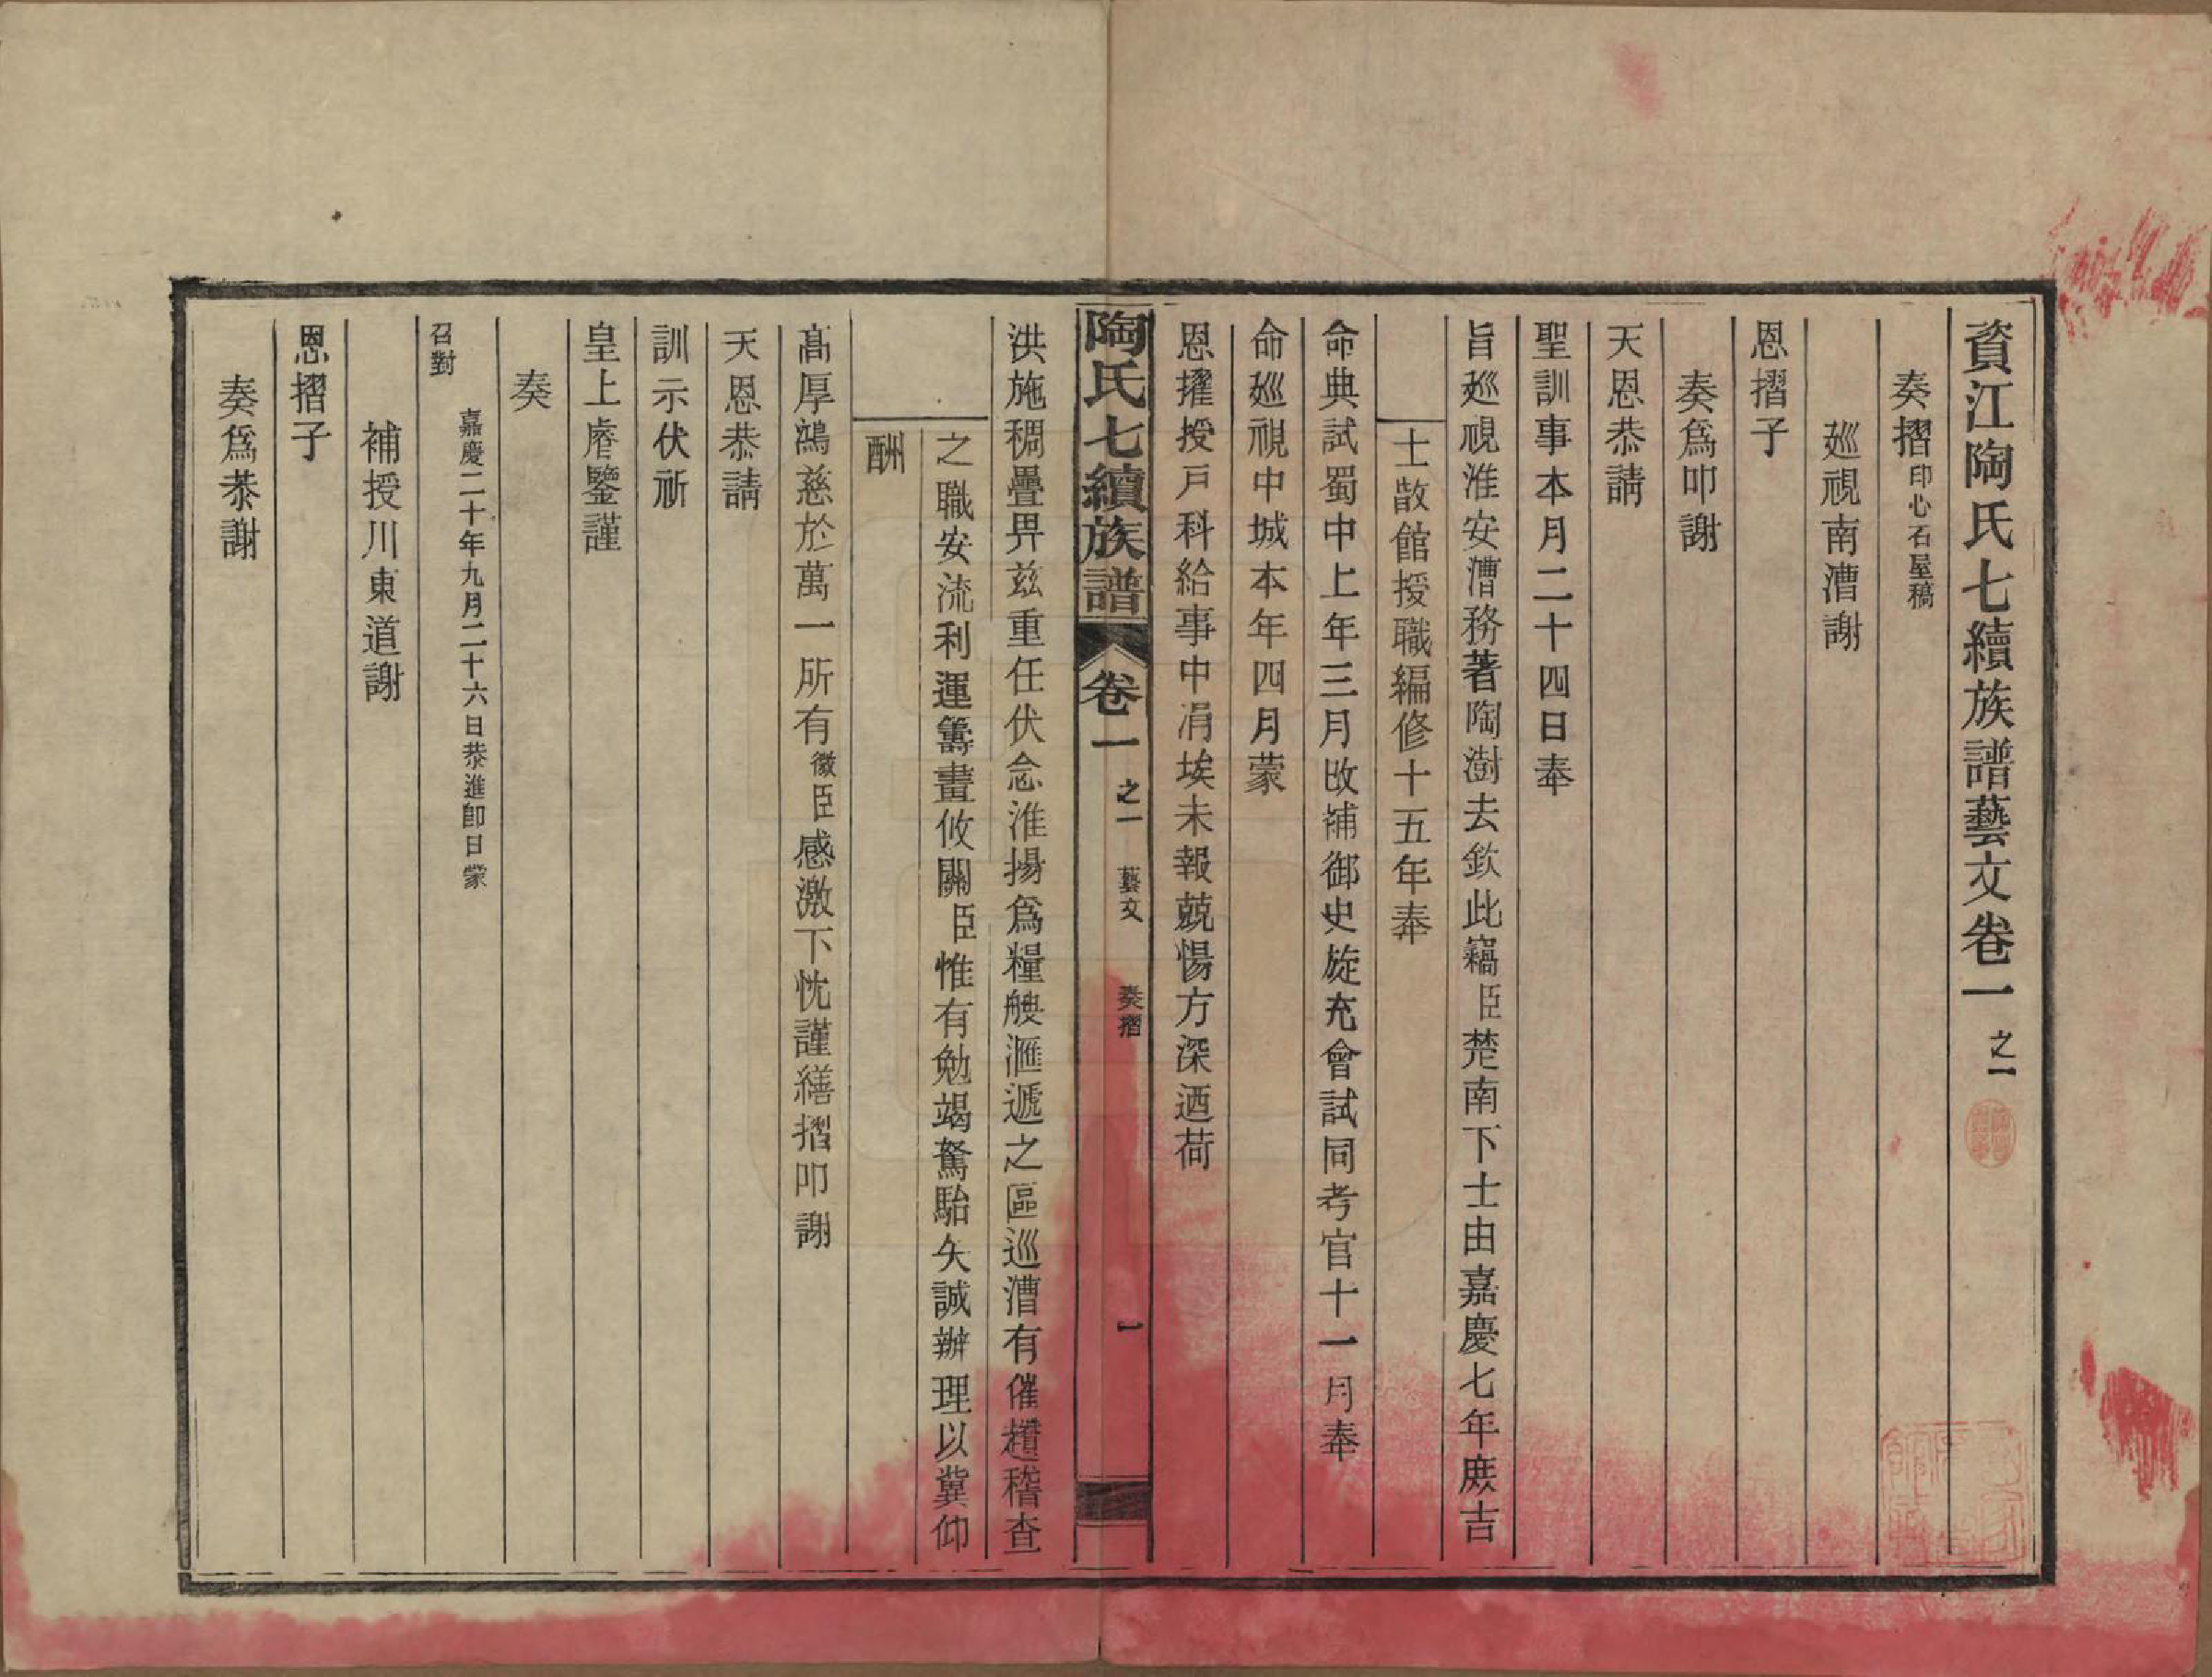 資江陶氏七續族譜藝文卷一 之一
奏摺 印心石屋稿
廵視南漕謝
恩摺子
奏爲叩謝
天恩恭請
聖訓事本月二十四日奉
旨廵視淮安漕務著陶澍去欽此竊臣楚南下士由嘉慶七年庶吉
士散館授職編修十五年奉
命典試蜀中上年三月改補御史旋充會試同考官十一月奉
命廵視中城本年四月蒙
恩擢授戸科給事中涓埃未報兢惕方深迺荷
陶氏七續族譜 卷一 之一 藝文 奏摺 一
洪施稠疊畀茲重任伏念淮揚爲糧艘滙遞之區巡漕有催趲稽查
之職安流利運籌畫攸關臣惟有勉竭駑駘矢誠辦理以冀仰
酬
高厚鴻慈於萬一所有徽臣感激下忱謹繕摺叩謝
天恩恭請
訓示伏祈
皇上睿鑒謹
奏
嘉慶二十年九月二十六日恭進卽日蒙
召對
補授川東道謝
恩摺子
奏爲恭謝